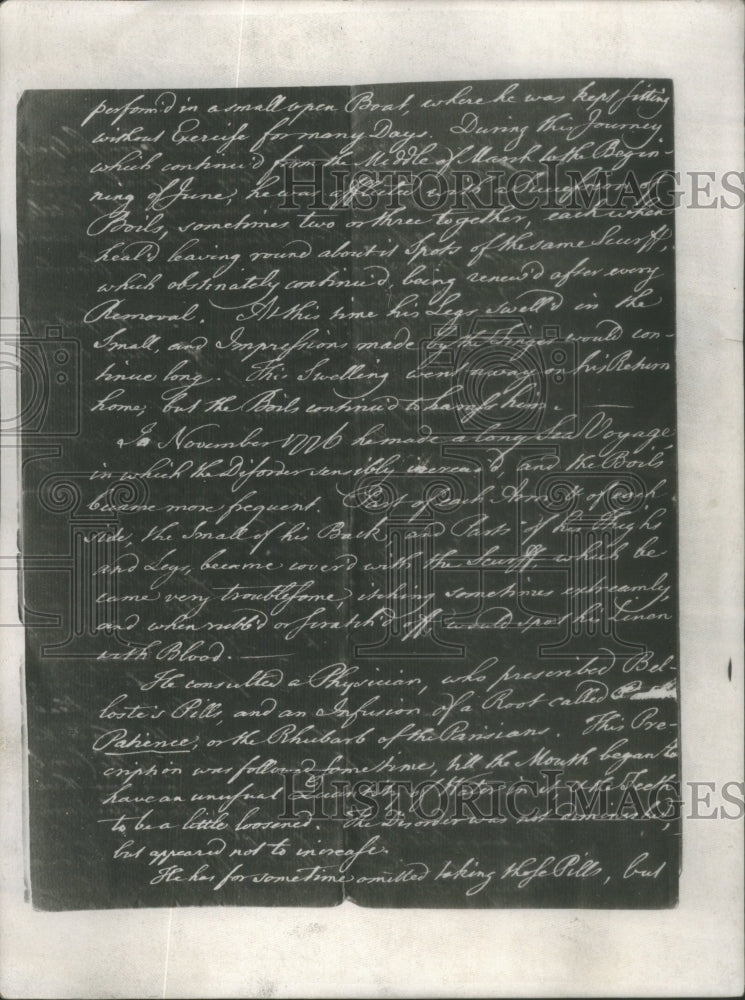 perform'd in a small open Boat, where he was kept sitting
without Exercise for many Days. During this Journey
which continu'd from the Middle of March to the Begin-
ning of June, he was afflicted with a Succession of
Boils, sometimes two or three together, each when
heal'd leaving round about it Spots of the same Scurff,
which obstinately continu'd, being renew'd after every
Removal. At this time his Legs swell'd in the
Small, and Impressions made by the Finger would con-
tinue long. This Swelling went away on his Return
home; but the Boils continu'd to harass him. —
In November 1776 he made a long Sea Voyage
in which the Disorder sensibly increas'd, and the Boils
became more frequent. Part of each Arm & of each
side, the Small of his Back, and Parts of his Thighs
and Legs, became cover'd with the Scurff, which be
came very troublesome, itching sometimes extreamly
and when rubb'd or scratch'd off would spot his Linen
with Blood. —
He consulted a Physician, who prescribed Bel-
loste's Pills, and an Infusion of a Root called
Patience, or the Rhubarb of the Parisians. This Pre-
cription was followed some time till the Mouth began to
have an unusual Quantity of Water in it & the Teeth
to be a little loosened. The Disorder was not diminish'd,
but appeared not to increase.
He has for some time omitted taking those Pills, but
HISTORICIMAGES
HISTORICIMAGES